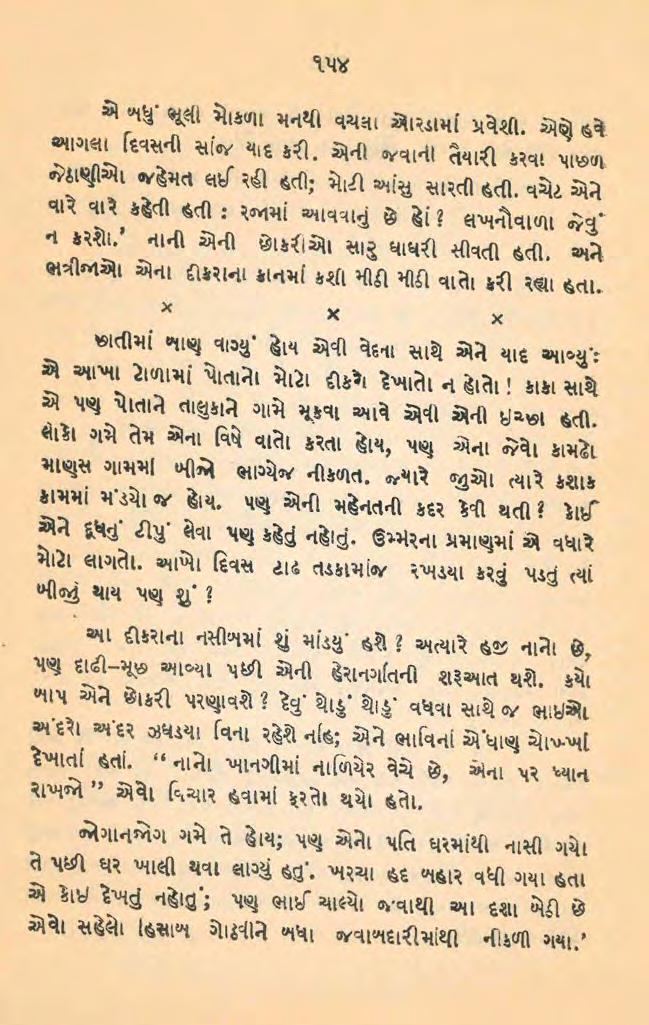 ૧૫૪
એ બધું ભૂલી મોકળા મનથી વચલા ઓરડામાં પ્રવેશી. એણે હવે
આગલા દિવસની સાંજ યાદ કરી. એની જવાની તૈયારી કરવા પાછળ
જેઠાણીઓ જહેમત લઈ રહી હતી; મોટી આંસુ સારતી હતી. વચેટ એને
વારે વારે કહેતી હતી : રજામાં આવવાનું છે હોં? લખનૌવાળા જેવું
ન કરશો.’ નાની એની છોકરીઓ સારુ ઘાઘરી સીવતી હતી. અને
ભત્રીજાઓ એના દીકરાના કાનમાં કશી મીઠી મીઠી વાતો કરી રહ્યા હતા.
× × ×
છાતીમાં બાણ વાગ્યું હોય એવી વેદના સાથે એને યાદ આવ્યું:
એ આખા ટોળામાં પોતાનો મોટો દીકરો દેખાતો ન હોતો! કાકા સાથે
એ પણ પોતાને તાલુકાને ગામે મૂકવા આવે એવી એની ઇચ્છા હતી.
લોકો ગમે તેમ એના વિષે વાતો કરતા હોય, પણ એના જેવો કામઢો
માણુસ ગામમાં બીજો ભાગ્યેજ નીકળત. જ્યારે જુઓ ત્યારે કશાક
કામમાં મંડયો જ હોય. પણ એની મહેનતની કદર કેવી થતી? કોઈ
એને દૂધનું ટીપું લેવા પણ કહેતું નહોતું. ઉમ્મરના પ્રમાણમાં એ વધારે
મોટો લાગતો. આખો દિવસ ટાઢ તડકામાંજ રખડયા કરવું પડતું ત્યાં
બીજું થાય પણ શું ?
આ દીકરાના નસીબમાં શું માંડયું હશે ? અત્યારે હજી નાનો છે,
પણ દાઢી–મૂછ આવ્યા પછી એની હેરાનગતિની શરૂઆત થશે. કયો
બાપ એને છોકરી પરણાવશે ? દેવું થોડું થોડું વધવા સાથે જ ભાઇઓ
અંદરો અંદર ઝઘડયા વિના રહેશે નહિ; એને ભાવિનાં એંધાણ ચોખ્ખાં
દેખાતાં હતાં. “ નાનો ખાનગીમાં નાળિયેર વેચે છે, એના પર ધ્યાન
રાખજો ” એવો વિચાર હવામાં ફરતો થયો હતો.
જોગાનજોગ ગમે તે હોય; પણ એનો પતિ ઘરમાંથી નાસી ગયો
તે પછી ઘર ખાલી થવા લાગ્યું હતું. ખરચા હદ બહાર વધી ગયા હતા
એ કોઇ દેખતું નહોતું; પણ ભાઈ ચાલ્યો જવાથી આ દશા બેઠી છે
એવો સહેલો હિસાબ ગોઠવીને બધા જવાબદારીમાંથી નીકળી ગયા.’